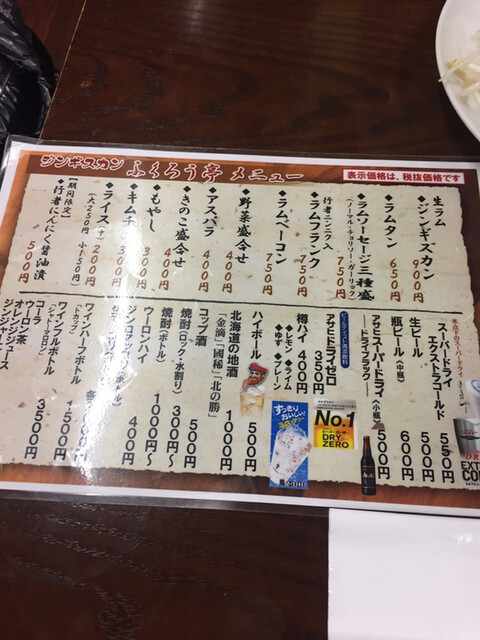 ジンギスカン ふくろう亭 メニュー
表示価格は、税抜価格です
生ラム
ジンギスカン 900円
◆ラムタン 650円
◆ラムソーセージ三種盛 750円
(ノーマル・チョリソー・ガーリック)
行者ニンニク入
◆ラムフランク 750円
◆ラムベーコン 750円
◆野菜盛合せ 400円
◆アスパラ 400円
◆きのこ盛合せ 400円
◆もやし 300円
◆キムチ 300円
◆ライス(中) 200円
(大250円 小150円)
【期間限定】
◆行者にんにく醤油漬 500円
氷点下のスーパードライ
スーパードライ
エクストラコールド 550円
生ビール 500円
瓶ビール(中瓶) 600円
アサヒスーパードライ
ードライブラックー(小瓶) 500円
ビールテイスト清涼飲料
アサヒドライゼロ 350円
樽ハイ 400円
◆レモン ◆ライム
◆梅干 ◆プレーン
ハイボール 500円
北海道の地酒 1000円
「金滴」「國稀」「北の勝」
コップ酒 500円
焼酎(ロック・水割り) 300円
焼酎(ボトル) 1000円〜
ウーロンハイ 400円
ワインハーフボトル
(トカップ)
ワインフルボトル 2500円
コーラ
ウーロン茶
オレンジジュース
すっきりおいしい!
No.1
DRY ZERO